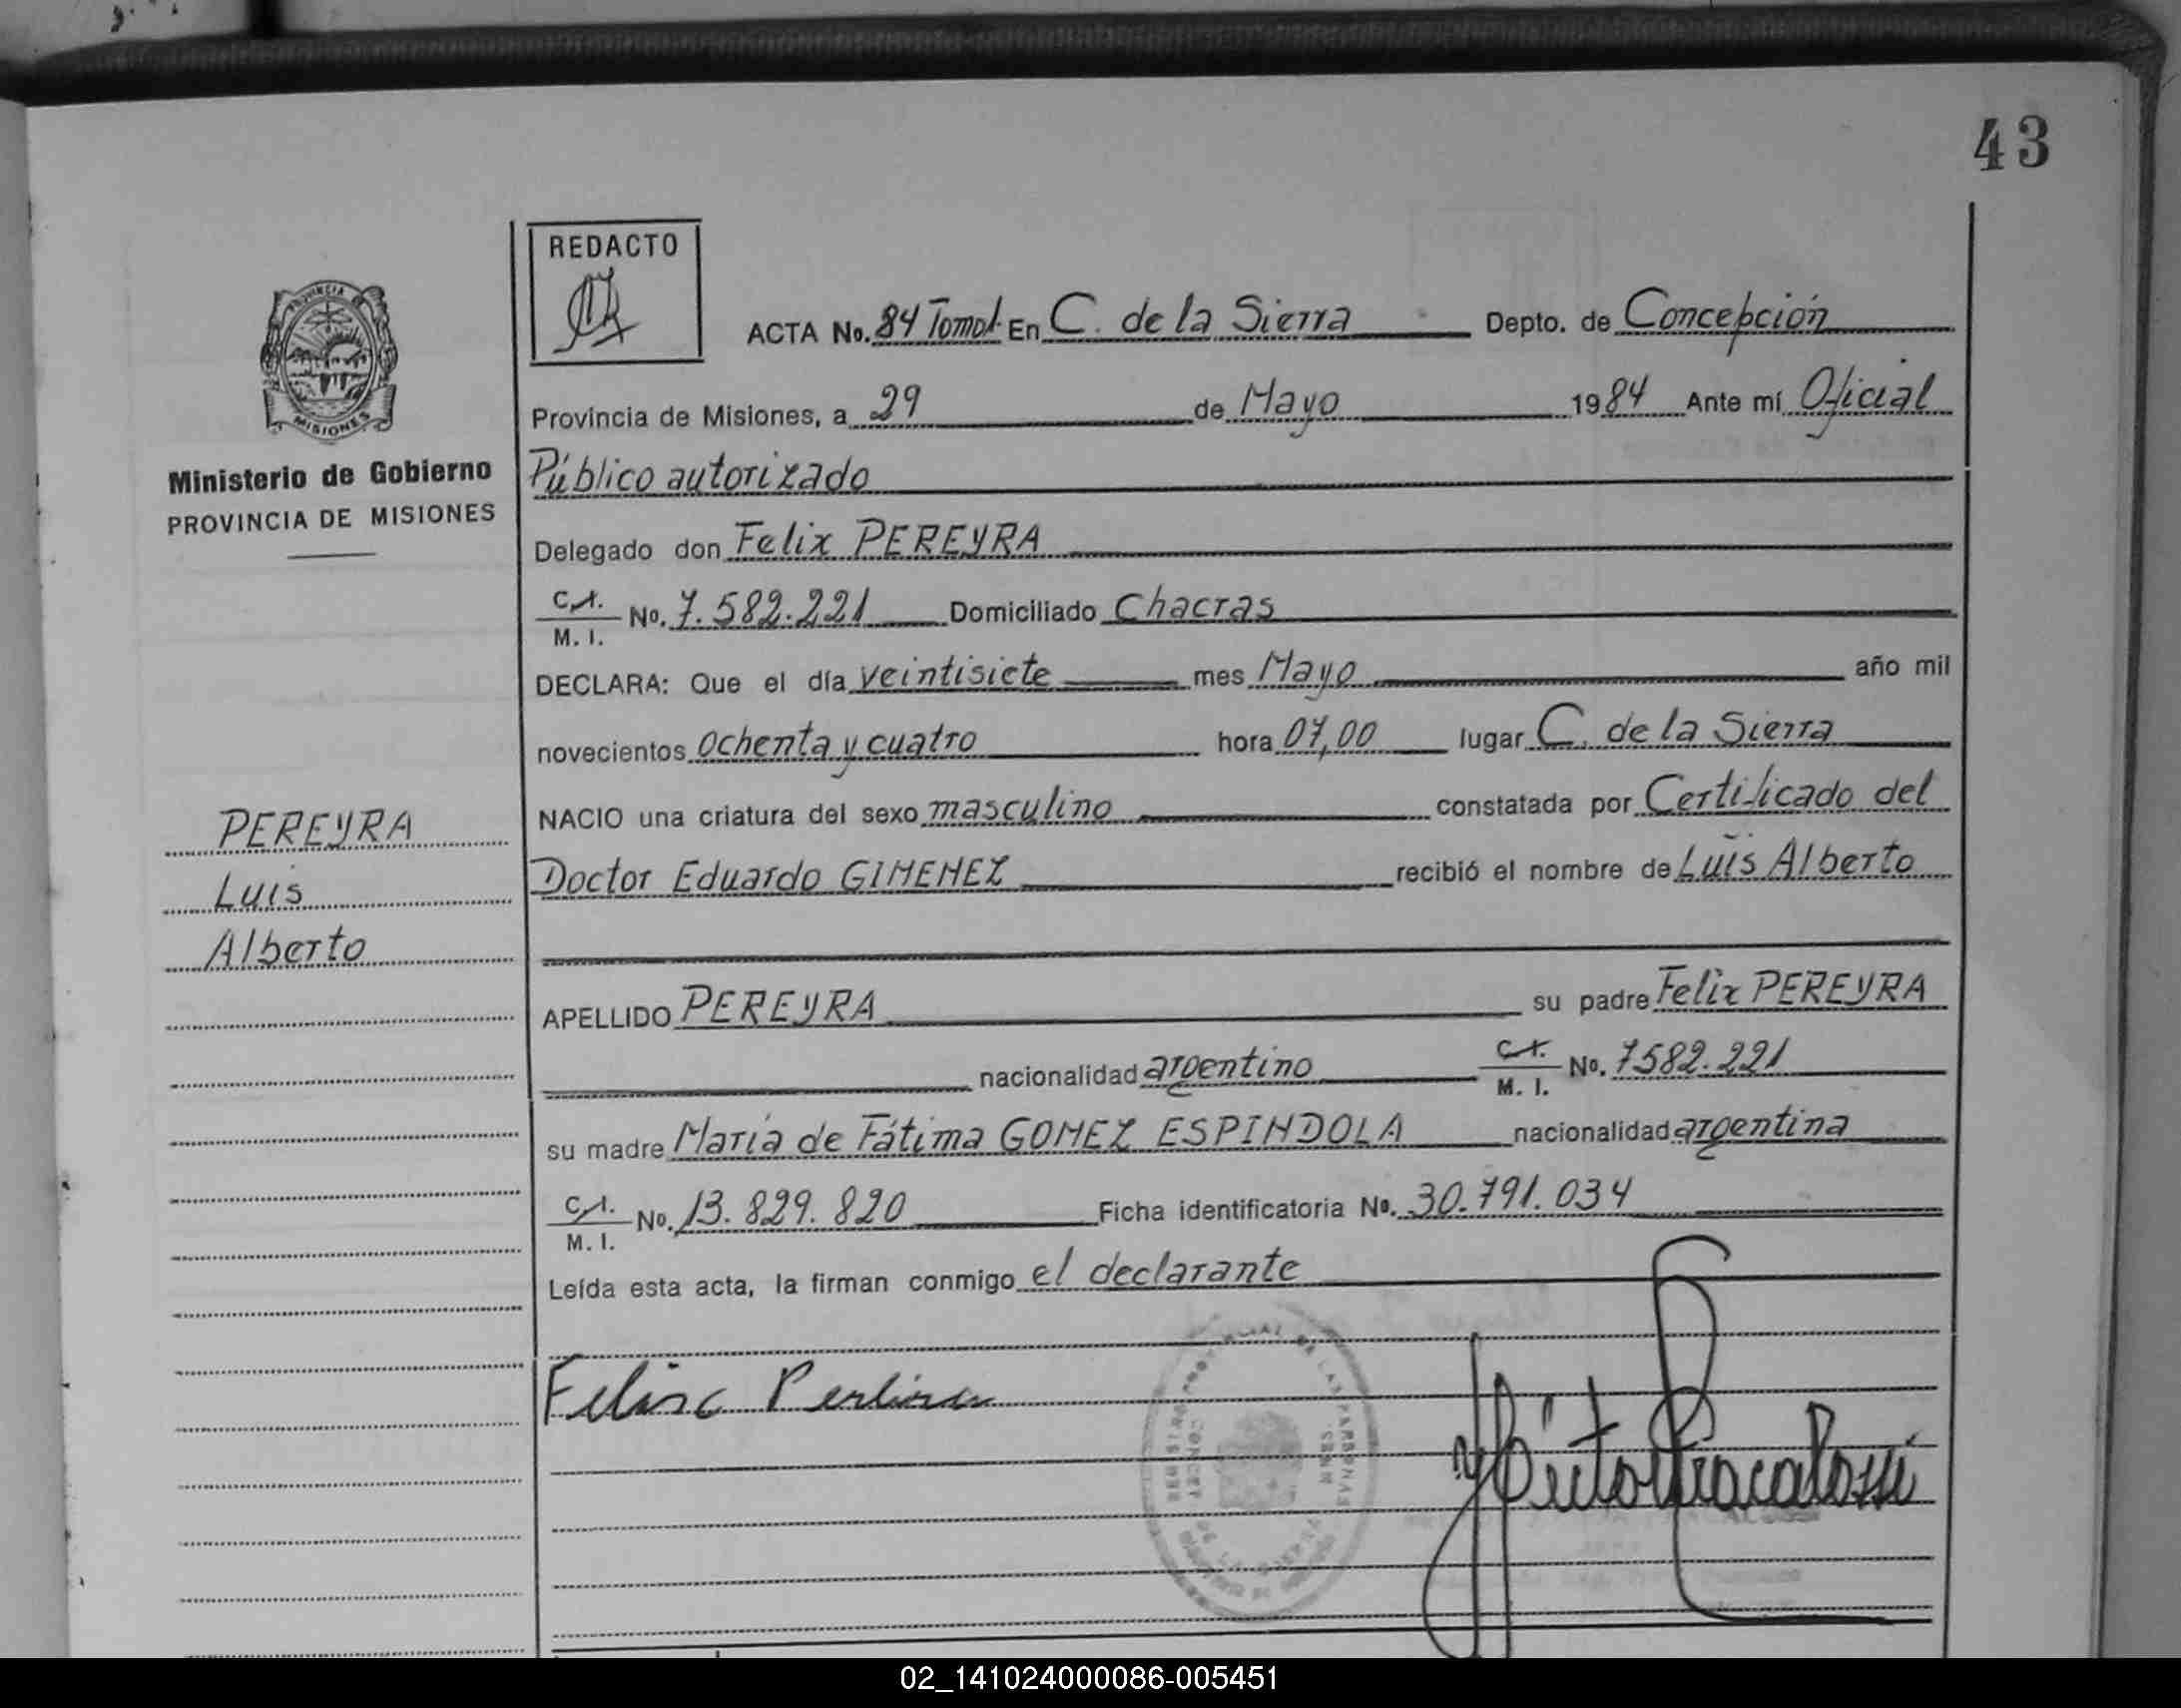 43
REDACTO
ACTA No. 84 Tomo I. En C. de la Sierra Depto. de Concepción
Provincia de Misiones, a 29 de Mayo 1984 Ante mí Oficial
Ministerio de Gobierno
PROVINCIA DE MISIONES
Público autorizado
Delegado don Felix PEREYRA
C.I. M. I. No. 7.582.221 Domiciliado Chacras
DECLARA: Que el día veintisiete mes Mayo año mil
novecientos ochenta y cuatro hora 07,00 lugar C. de la Sierra
NACIO una criatura del sexo masculino constatada por Certificado del
PEREYRA
Luis
Alberto
Doctor Eduardo GIMENEZ recibió el nombre de Luis Alberto
APELLIDO PEREYRA su padre Felix PEREYRA
nacionalidad argentino C.I. M. I. No. 7582.221
su madre María de Fátima GOMEZ ESPINDOLA nacionalidad argentina
C.I. M. I. No. 13.829.820 Ficha identificatoria No. 30.791.034
Leída esta acta, la firman conmigo el declarante
02_141024000086-005451